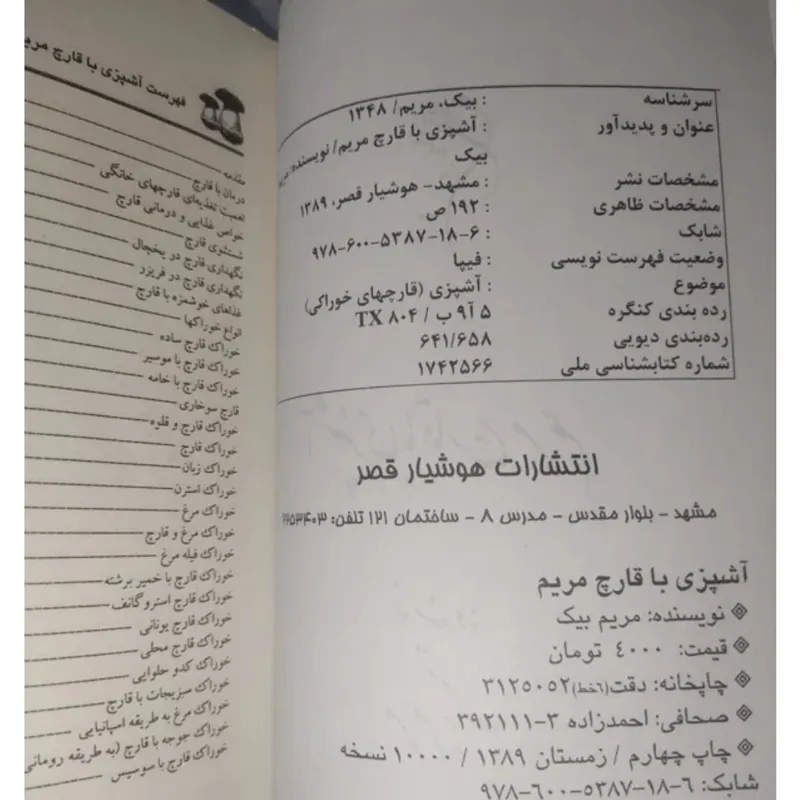 سرشناسه : بیک، مریم/ ۱۳۴۸
عنوان و پدیدآور : آشپزی با قارچ مریم/ نویسنده:
بیک
مشخصات نشر : مشهد- هوشیار قصر، ۱۳۸۹
مشخصات ظاهری : ۱۹۲ ص
شابک : ۹۷۸-۶۰۰-۵۳۸۷-۱۸-۶
وضعیت فهرست نویسی : فیپا
موضوع : آشپزی (قارچهای خوراکی)
رده بندی کنگره : ۵ آ ۹ ب / TX ۸۰۴
رده‌بندی دیویی : ۶۴۱/۶۵۸
شماره کتابشناسی ملی : ۱۷۴۲۵۶۶
انتشارات هوشیار قصر
مشهد - بلوار مقدس - مدرس ۸ - ساختمان ۱۲۱ تلفن:
آشپزی با قارچ مریم
نویسنده: مریم بیک
قیمت: ۴۰۰۰ تومان
چاپخانه: دقت(۶خط)۳۱۲۵۰۵۲
صحافی: احمدزاده ۳-۳۹۲۱۱۱
چاپ چهارم / زمستان ۱۳۸۹ / ۱۰۰۰۰ نسخه
شابک: ۹۷۸-۶۰۰-۵۳۸۷-۱۸-۶
فهرست آشپزی با قارچ
مقدمه
درمان با قارچ
اهمیت تغذیه‌ای قارچهای خانگی
خواص غذایی و درمانی قارچ
شستشوی قارچ
نگهداری قارچ در یخچال
نگهداری قارچ در فریزر
غذاهای خوشمزه با قارچ
انواع خوراکها
خوراک قارچ ساده
خوراک قارچ با موسیر
خوراک قارچ با خامه
قارچ سوخاری
خوراک قارچ و قلوه
خوراک قارچ
خوراک زبان
خوراک استرن
خوراک مرغ
خوراک مرغ و قارچ
خوراک فیله مرغ
خوراک قارچ با خمیر برشته
خوراک قارچ استروگانف
خوراک قارچ یونانی
خوراک قارچ محلی
خوراک کدو حلوایی
خوراک سبزیجات با قارچ
خوراک مرغ به طریقه اسپانیایی
خوراک جوجه با قارچ (به طریقه رومانی
خوراک قارچ با سوسیس